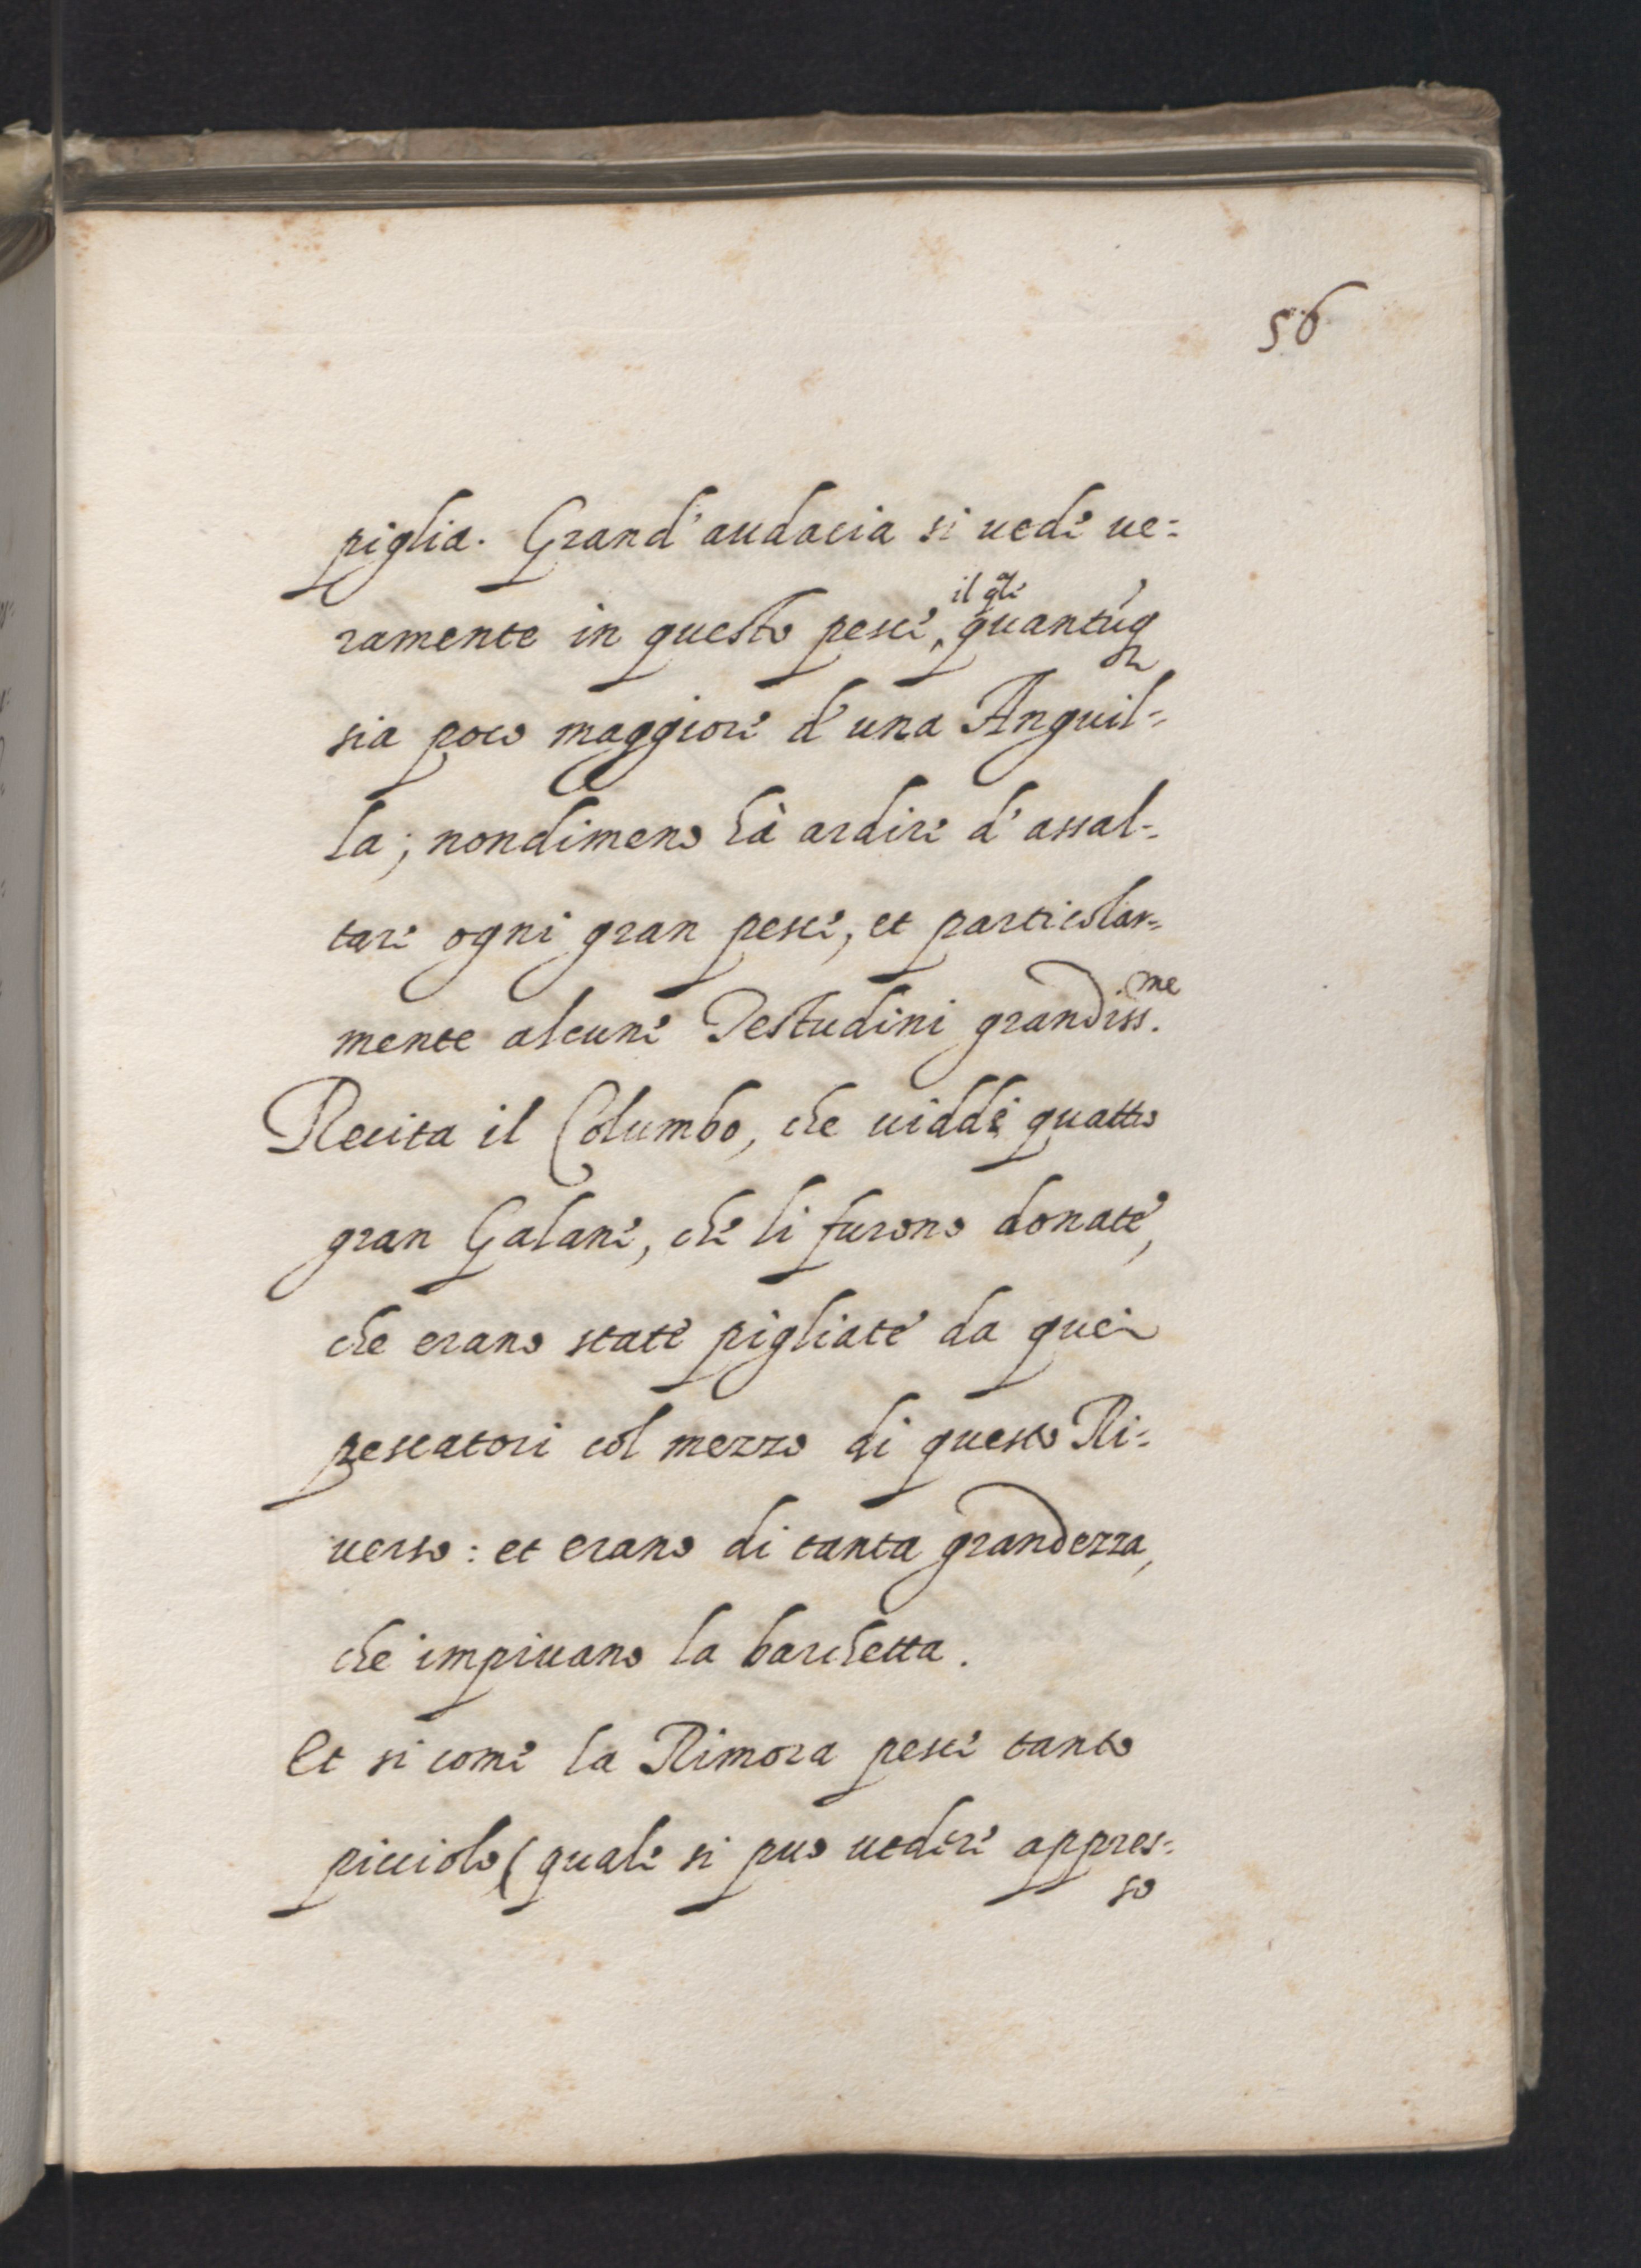 56
piglia. Grand'audacia si uede ue=
ramente in questo pesce, il qle quantuq
sia poco maggiore d'una Anguil=
la; nondimeno hà ardire d'assal=
tare ogni gran pesce, et particolar=
mente alcune Testudini grandiss.me
Recita il Columbo, che uidde quattro
gran Galane, che li furono donate,
che erano state pigliate da quei
pescatori col mezzo di questo Ri=
uerso: et erano di tanta grandezza,
che impiuano la barchetta.
Et si come la Rimora pesce tanto
picciolo (quale si puo uedere appres=
so